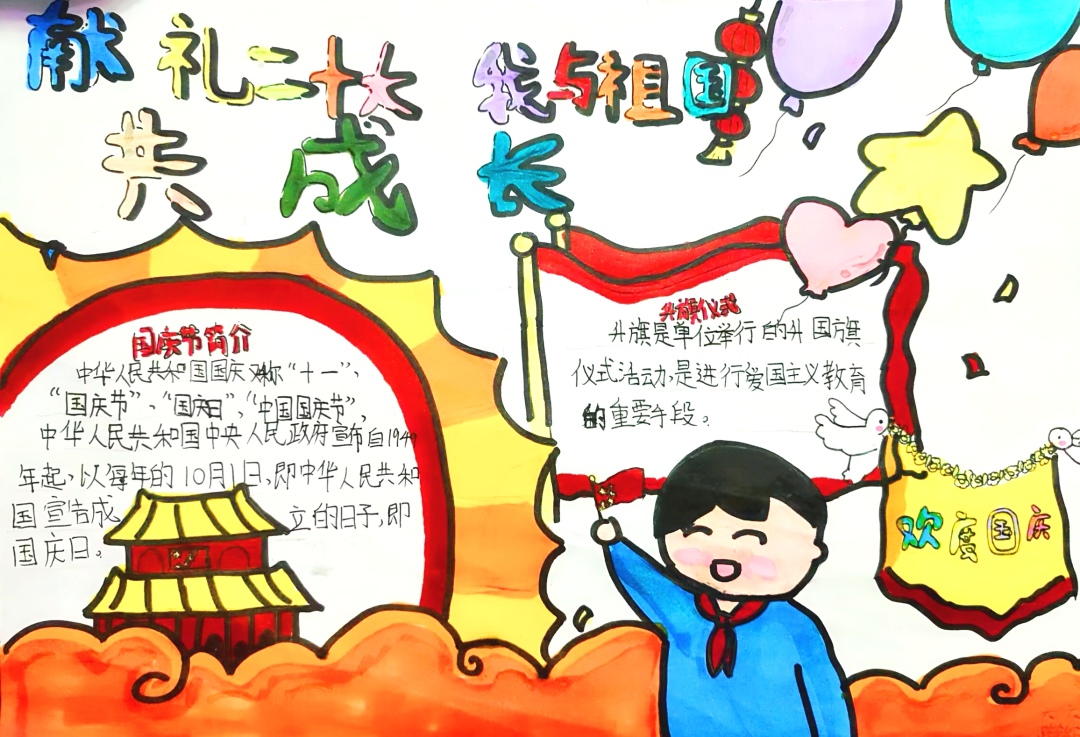 献礼二十大 我与祖国
共成长
国庆节简介
中华人民共和国国庆又称“十一”、
“国庆节”、“国庆日”、“中国国庆节”,
中华人民共和国中央人民政府宣布自1949
年起,以每年的10月1日,即中华人民共和
国宣告成立的日子,即
国庆日。
升旗仪式
升旗是单位举行的升国旗
仪式活动,是进行爱国主义教育
的重要手段。
欢度国庆